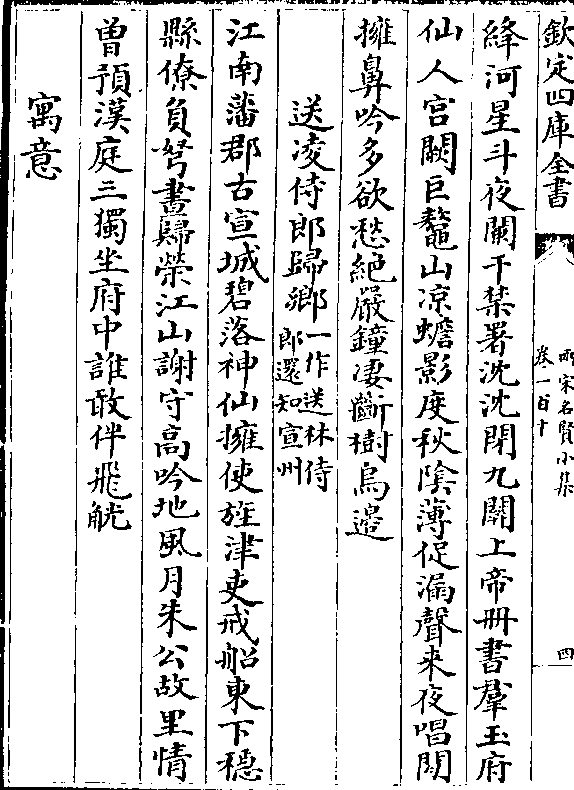 欽定四庫全書
兩宋名賢小集
卷一百十
四
絳河星斗夜闌干禁署沈沈閉九關上帝冊書羣玉府
仙人宫闕巨鼇山凉蟾影度秋隂薄促漏聲来夜唱閒
擁鼻吟多欲愁絶嚴鐘凄斷樹烏還
送凌侍郎歸鄉一作送林侍
郎還知宣州
江南藩郡古宣城碧落神仙擁使旌津吏戒船東下穩
縣僚負弩晝歸榮江山謝守高吟地風月朱公故里情
曽預漢庭三獨坐府中誰敢伴飛觥
寓意